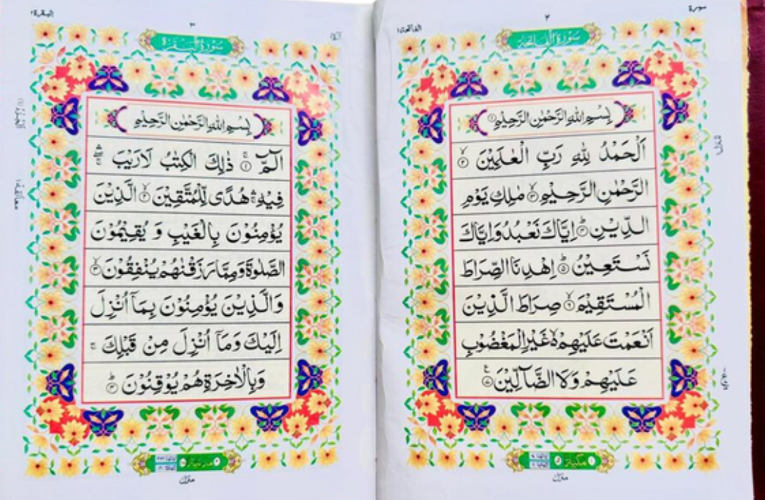 سورة
٢
الفاتحة١
سورة الفاتحة
بِسْمِ اللهِ الرَّحْمٰنِ الرَّحِيْمِ ١
اَلْحَمْدُ لِلّٰهِ رَبِّ الْعٰلَمِيْنَ ۙ٢
الرَّحْمٰنِ الرَّحِيْمِ ۙ٣ مٰلِكِ يَوْمِ
الدِّيْنِ ۗ٤ اِيَّاكَ نَعْبُدُ وَاِيَّاكَ
نَسْتَعِيْنُ ۗ٥ اِهْدِنَا الصِّرَاطَ
الْمُسْتَقِيْمَ ۙ٦ صِرَاطَ الَّذِيْنَ
اَنْعَمْتَ عَلَيْهِمْ ەۙ غَيْرِ الْمَغْضُوْبِ
عَلَيْهِمْ وَلَا الضَّآلِّيْنَ ࣖ٧
منزل
٣
البقرة٢
سورة البقرة
بِسْمِ اللهِ الرَّحْمٰنِ الرَّحِيْمِ
الٓمّٓ ۚ١ ذٰلِكَ الْكِتٰبُ لَا رَيْبَ ۛۖ
فِيْهِ ۛ هُدًى لِّلْمُتَّقِيْنَ ۙ٢ الَّذِيْنَ
يُؤْمِنُوْنَ بِالْغَيْبِ وَ يُقِيْمُوْنَ
الصَّلٰوةَ وَمِمَّا رَزَقْنٰهُمْ يُنْفِقُوْنَ ۙ٣
وَالَّذِيْنَ يُؤْمِنُوْنَ بِمَآ اُنْزِلَ
اِلَيْكَ وَمَآ اُنْزِلَ مِنْ قَبْلِكَ ۚ
وَبِالْاٰخِرَةِ هُمْ يُوْقِنُوْنَ ۗ٤
منزل